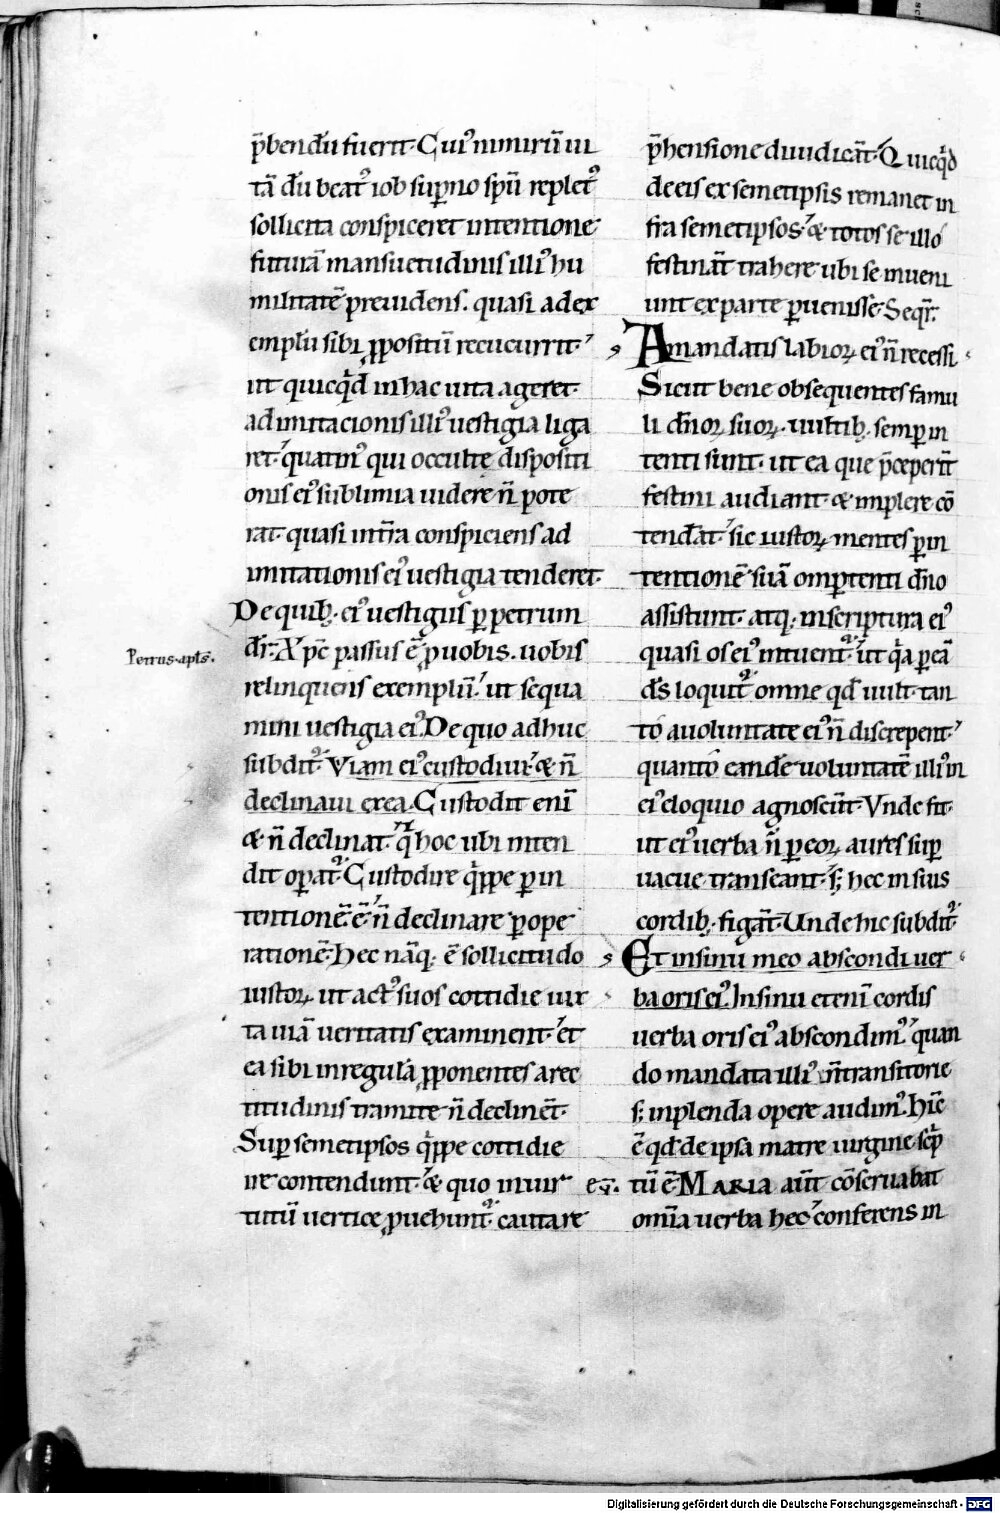 p̄bendū fuerit. Cui᷒ nimirū ui
tā dū beat᷒ iob sup̱no sp̄u replet᷒
sollicita conspiceret intentione
futurā mansuetudinis illi᷒ hu
militatē preuidens. quasi ad ex
emplū sibi ꝓpositū recucurrit.
ut quicq̄d in hac uita ageret.
ad imitacionis illi᷒ uestigia liga
ret. quatin᷒ qui occulte dispositi
onis ei᷒ sublimia uidere n̄ pote
rat. quasi int̄ra conspiciens ad
imitationis ei᷒ uestigia tenderet.
De quib; ei᷒ uestigiis ꝑ petrum
Petrus apls̄.
dr̄. Xp̄c passus ē ꝓ uobis. uobis
relinquens exemplū. ut sequa
mini uestigia ei᷒. De quo adhuc
subdit᷒. Viam ei᷒ custodiui. & n̄
declinaui ex ea. Custodit eni̅
& n̄ declinat. q̇ hoc ubi inten
dit oꝑat᷒. Custodire q̇ppe ꝑ in
tentionē. ē n̄ declinare ꝑ ope
rationē. Hec nāq; ē sollicitudo
iustoꝝ ut act᷒ suos cottidie iux
ta uiā ueritatis examinent. et
ea sibi in regulā ꝓponentes a rec
titudinis tramite n̄ declinēt.
Suꝑ semetipsos q̇ppe cottidie
ire contendunt. & quo in uir
tutū uertice ꝓuehunt᷒. cauta re
p̄hensione diiudicāt. Quicq̇d
de eis ex semetipsis remanet in
fra semetipsos. & totos se illo
festināt trahere ubi se inueni
unt ex parte ꝑuenisse. Seqr̄.
A mandatis labioꝝ ei᷒ n̄ recessi
Sicut bene obsequentes famu
li dn̄oꝝ suoꝝ. uultib; semꝑ in
tenti sunt. ut ea que p̄ceperīt
festini audiant. & implere cō
tendāt. sic iustoꝝ mentes ꝑ in
tentionē suā omīpotenti dn̄o
assistunt. atq; in scriptura ei᷒
quasi os ei᷒ intuent᷒. ut q̇a ꝑ eā
ds̄ loquit᷒ omne qd̄ uult. tan
to a uoluntate ei᷒ n̄ discrepent.
quanto eandē uoluntatē illi᷒ in
ei᷒ eloquio agnoscūt. Vnde fit.
ut ei᷒ uerba n̄ ꝑ eoꝝ aures suꝑ
uacue transeant. s; hec in suis
cordib; figāt. Unde hic subdit᷒.
Et in sinu meo abscondi uer
ba oris ei᷒. In sinu eteni̅ cordis
uerba oris ei᷒ abscondim᷒. quan
do mandata illi᷒ n̄ transitorie
s; inplenda opere audim᷒. Hinc
ē qd̄ de ipsa matre uirgine sc̄p
eṽ.
tū ē. MARIA aūt cōseruabat
omīa uerba hec. conferens in
Digitalisierung gefördert durch die Deutsche Forschungsgemeinschaft - DFG